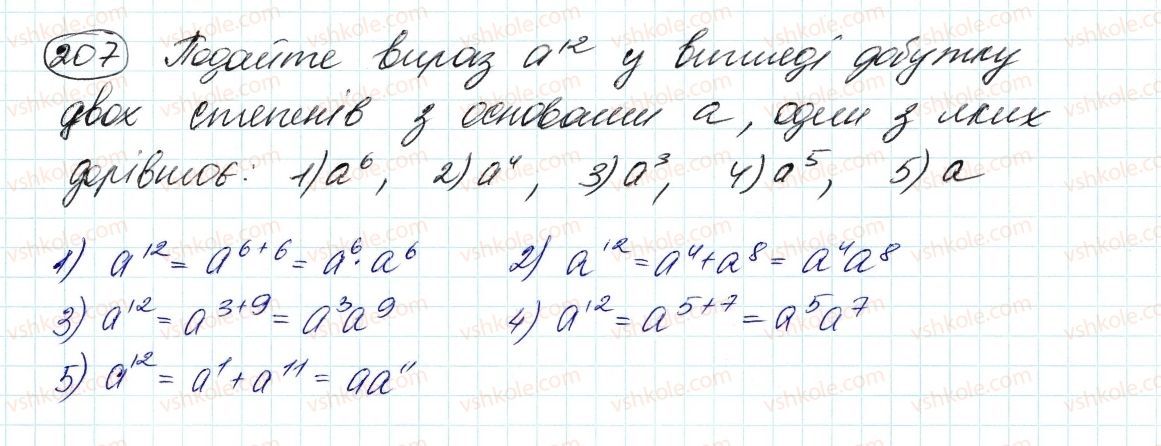 207 Подайте вираз a¹² у вигляді добутку
двох степенів з основами a, один з яких
дорівнює: 1) a⁶, 2) a⁴, 3) a³, 4) a⁵, 5) a
1) a¹² = a⁶⁺⁶ = a⁶ · a⁶ 2) a¹² = a⁴ + a⁸ = a⁴a⁸
3) a¹² = a³⁺⁹ = a³a⁹ 4) a¹² = a⁵⁺⁷ = a⁵a⁷
5) a¹² = a¹ + a¹¹ = aa¹¹